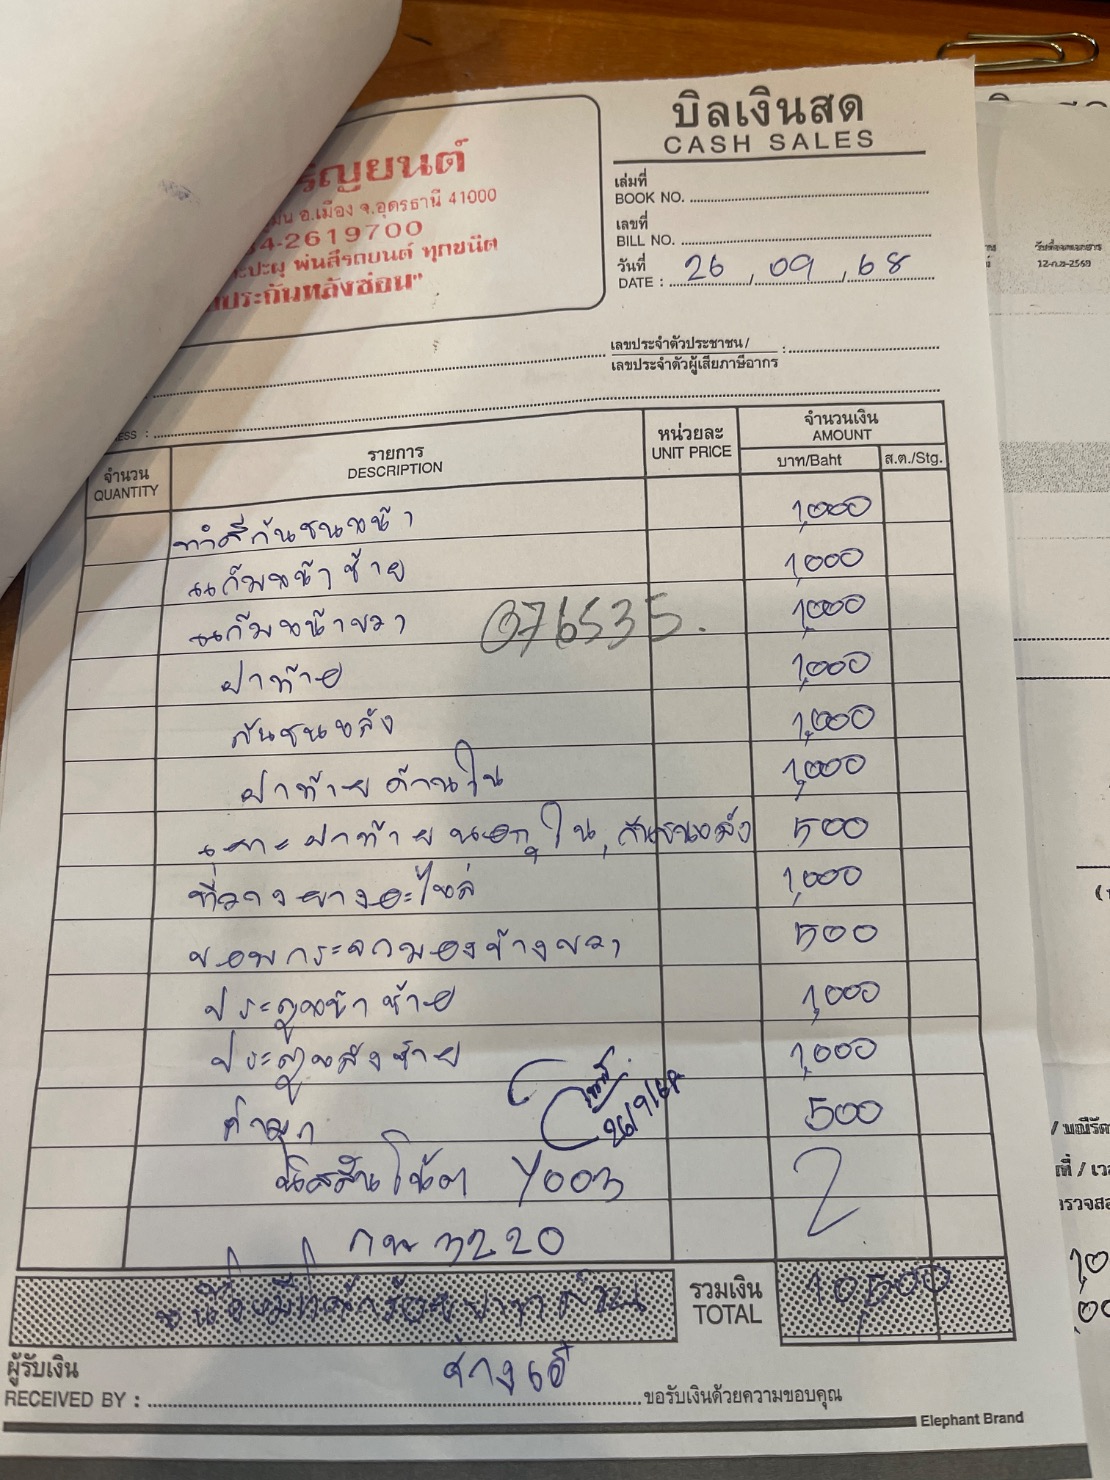 บิลเงินสด
CASH SALES
ริญยนต์
อ.เมือง จ.อุดรธานี 41000
4-2619700
ะปะผุ พ่นสีรถยนต์ ทุกชนิด
ประกันหลังซ่อม"
เล่มที่
BOOK NO.
เลขที่
BILL NO.
วันที่
DATE : 26 / 09 / 68
12-ก.ย-2568
เลขประจำตัวประชาชน /
เลขประจำตัวผู้เสียภาษีอากร :
ESS :
จำนวน
QUANTITY
รายการ
DESCRIPTION
หน่วยละ
UNIT PRICE
จำนวนเงิน
AMOUNT
บาท/Baht ส.ต./Stg.
ทำสีกันชนหน้า 1,000
แก้มหน้าซ้าย 1,000
แก้มหน้าขวา 076535. 1,000
ฝาท้าย 1,000
กันชนหลัง 1,000
ฝาท้ายด้านใน 1,000
เคาะฝาท้ายนอก, ใน, กันชนหลัง 500
ที่วางยางอะไหล่ 1,000
ขอบกระจกมองข้างขวา 500
ประตูหน้าซ้าย 1,000
ประตูหลังซ้าย 1,000
500
26/9/68
นิสสันโน๊ต Y003
กษ 3220
รวมเงิน
TOTAL
10,500
ช่างเอ๋
ผู้รับเงิน
RECEIVED BY : ขอรับเงินด้วยความขอบคุณ
Elephant Brand